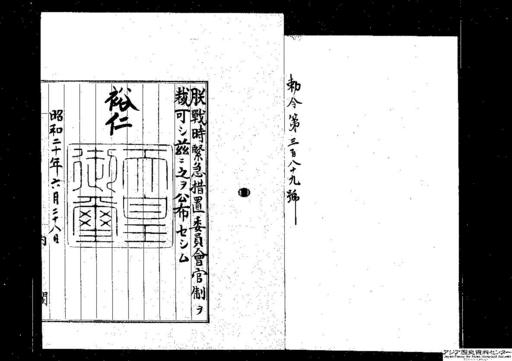 勅令第三百八十九號
朕戰時緊急措置委員會官制ヲ
裁可シ茲ニ之ヲ公布セシム
裕仁
天皇
御璽
昭和二十年六月二十八日
内閣
アジア歴史資料センター